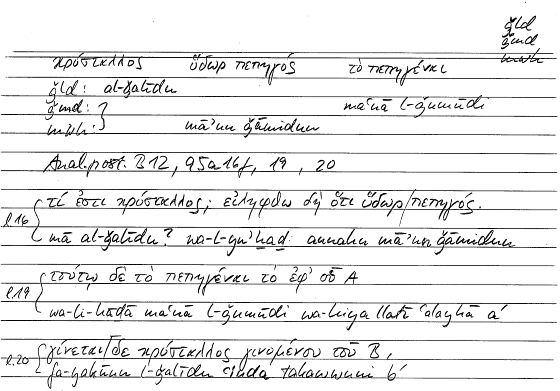 ǧld
ǧmd
mwh
κρύσταλλος ὕδωρ πεπηγός τὸ πεπηγέναι
ǧld: al-ǧalīdu
ǧmd: maʿnā l-ǧumūdi
mwh: māʾun ǧāmidun
Anal. post. B 12, 95a16f, 19, 20
l.16 τί ἐστι κρύσταλλος; εἰλήφθω δὴ ὅτι ὕδωρ/πεπηγός.
mā al-ǧalīdu? wa-l-yuʾḫaḏ: annahu māʾun ǧāmidun
l.19 τούτῳ δὲ τὸ πεπηγέναι τὸ ἐφ' οὗ A
wa-li-hāḏā maʿnā l-ǧumūdi wa-hiya llatī ʿalayhā a
l.20 γίνεται/δὲ κρύσταλλος γινομένου τοῦ B,
fa-yakūnu l-ǧalīdu ʿinda takawwuni b